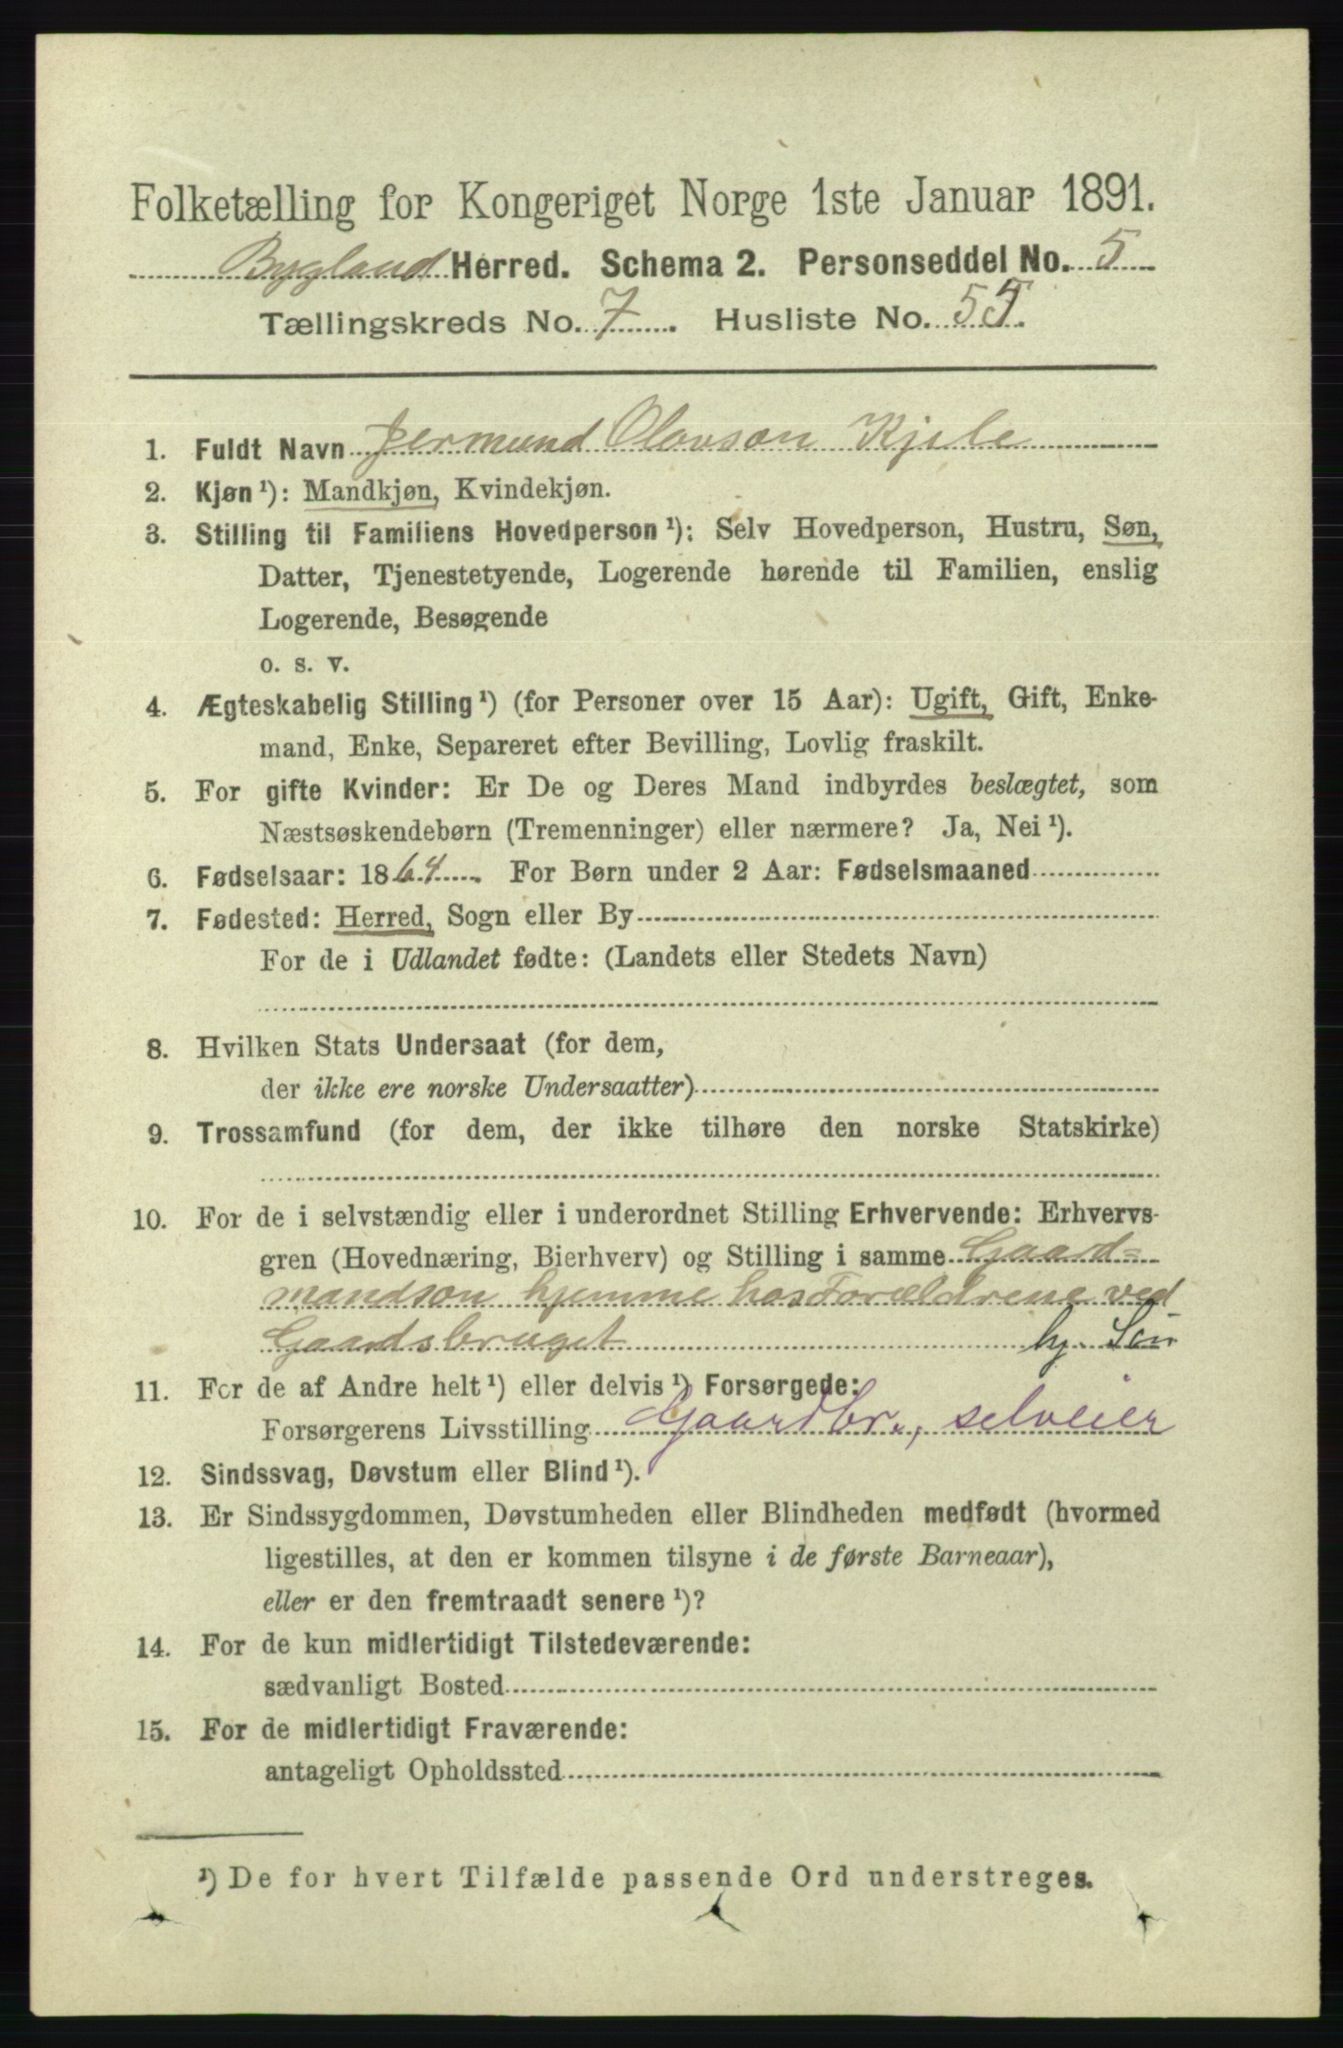 Folketælling for Kongeriget Norge 1ste Januar 1891.
Bygland Herred. Schema 2. Personseddel No. 5
Tællingskreds No. 7. Husliste No. 55.
1. Fuldt Navn Jermund Olavson Kjele
2. Kjøn¹): Mandkjøn, Kvindekjøn.
3. Stilling til Familiens Hovedperson¹): Selv Hovedperson, Hustru, Søn,
Datter, Tjenestetyende, Logerende hørende til Familien, enslig
Logerende, Besøgende
o. s. v.
4. Ægteskabelig Stilling¹) (for Personer over 15 Aar): Ugift, Gift, Enke-
mand, Enke, Separeret efter Bevilling, Lovlig fraskilt.
5. For gifte Kvinder: Er De og Deres Mand indbyrdes beslægtet, som
Næstsøskendebørn (Tremenninger) eller nærmere? Ja, Nei¹).
6. Fødselsaar: 1864. For Børn under 2 Aar: Fødselsmaaned
7. Fødested: Herred, Sogn eller By
For de i Udlandet fødte: (Landets eller Stedets Navn)
8. Hvilken Stats Undersaat (for dem,
der ikke ere norske Undersaatter)
9. Trossamfund (for dem, der ikke tilhøre den norske Statskirke)
10. For de i selvstændig eller i underordnet Stilling Erhvervende: Erhvervs-
gren (Hovednæring, Bierhverv) og Stilling i samme Gaard=
mandson hjemme hos Forældrene ved
Gaardsbruget hj. Søn
11. For de af Andre helt¹) eller delvis¹) Forsørgede:
Forsørgerens Livsstilling Gaardbr., selveier
12. Sindssvag, Døvstum eller Blind¹).
13. Er Sindssygdommen, Døvstumheden eller Blindheden medfødt (hvormed
ligestilles, at den er kommen tilsyne i de første Barneaar),
eller er den fremtraadt senere¹)?
14. For de kun midlertidigt Tilstedeværende:
sædvanligt Bosted
15. For de midlertidigt Fraværende:
antageligt Opholdssted
¹) De for hvert Tilfælde passende Ord understreges.